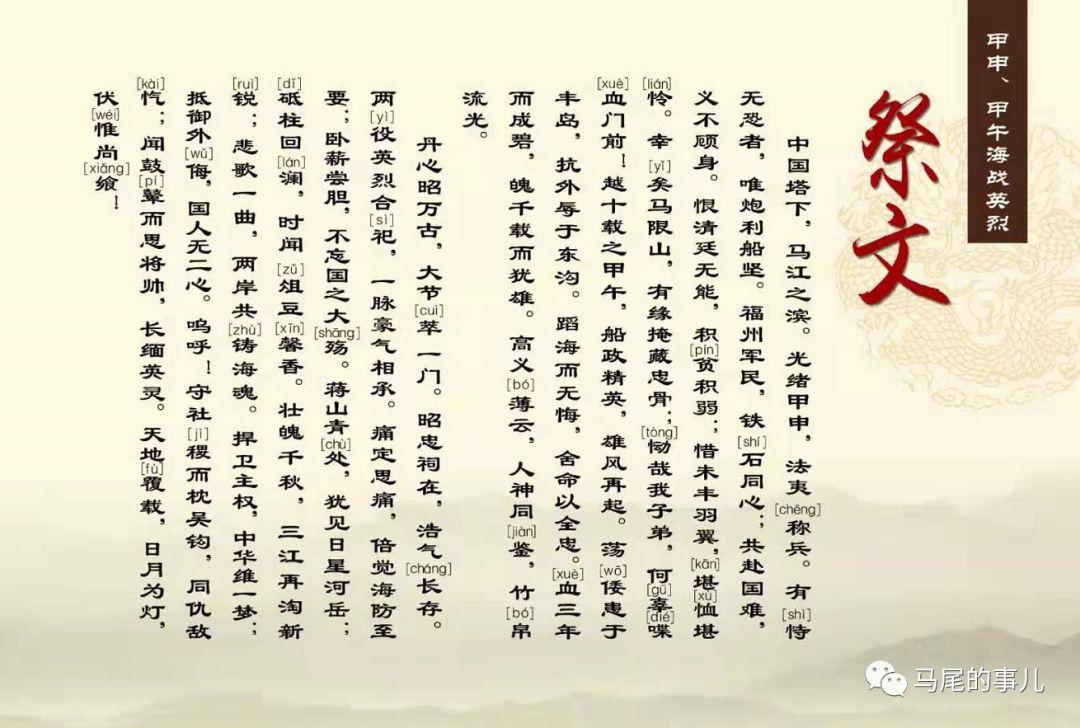 甲申、甲午海战英烈
祭文
中国塔下，马江之滨。光绪甲申，法夷[chēng]称兵。有[shì]恃
无恐者，唯炮利船坚。福州军民，铁[shí]石同心；共赴国难，
义不顾身。恨清廷无能，积[pín]贫积弱；惜未丰羽翼，[kān]堪[xù]恤堪
[lián]怜。幸[yǐ]矣马限山，有缘掩藏忠骨；[tòng]恸哉我子弟，何[gū]辜[dié]喋
[xuè]血门前！越十载之甲午，船政精英，雄风再起。荡[wō]倭患于
丰岛，抗外辱于东沟。蹈海而无悔，舍命以全忠。[xuè]血三年
而成碧，魄千载而犹雄。高义[bó]薄云，人神同[jiàn]鉴，竹[bó]帛
流光。
丹心昭万古，大节[cuì]萃一门。昭忠祠在，浩气[cháng]长存。
两[yì]役英烈合[sì]祀，一脉豪气相承。痛定思痛，倍觉海防至
要；卧薪尝胆，不忘国之大[shāng]殇。蒋山青[chù]处，犹见日星河岳；
[dǐ]砥柱回[lán]澜，时闻[zǔ]俎豆[xīn]馨香。壮魄千秋，三江再淘新
[ruì]锐；悲歌一曲，两岸共[zhù]铸海魂。捍卫主权，中华维一梦；
抵御外[wǔ]侮，国人无二心。呜呼！守社[jì]稷而枕吴钩，同仇敌
[kài]忾；闻鼓[pí]鼙而思将帅，长缅英灵。天地[fù]覆载，日月为灯，
伏[wéi]惟尚[xiǎng]飨！
马尾的事儿